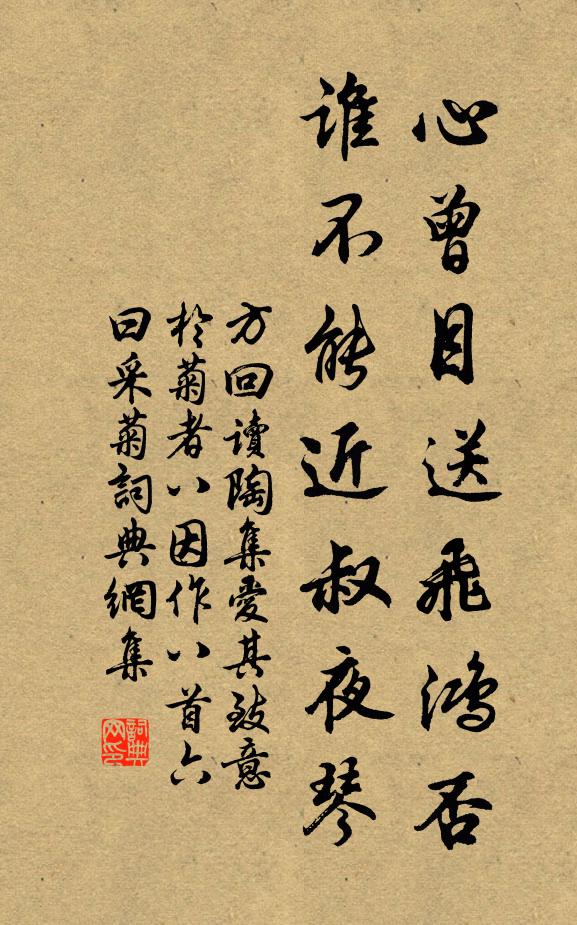 心曾目送飛鴻否
誰不能近叔夜琴
方回讀陶集愛其致意
於菊者八因作八首六
曰采菊詞典網集
詞典
网印